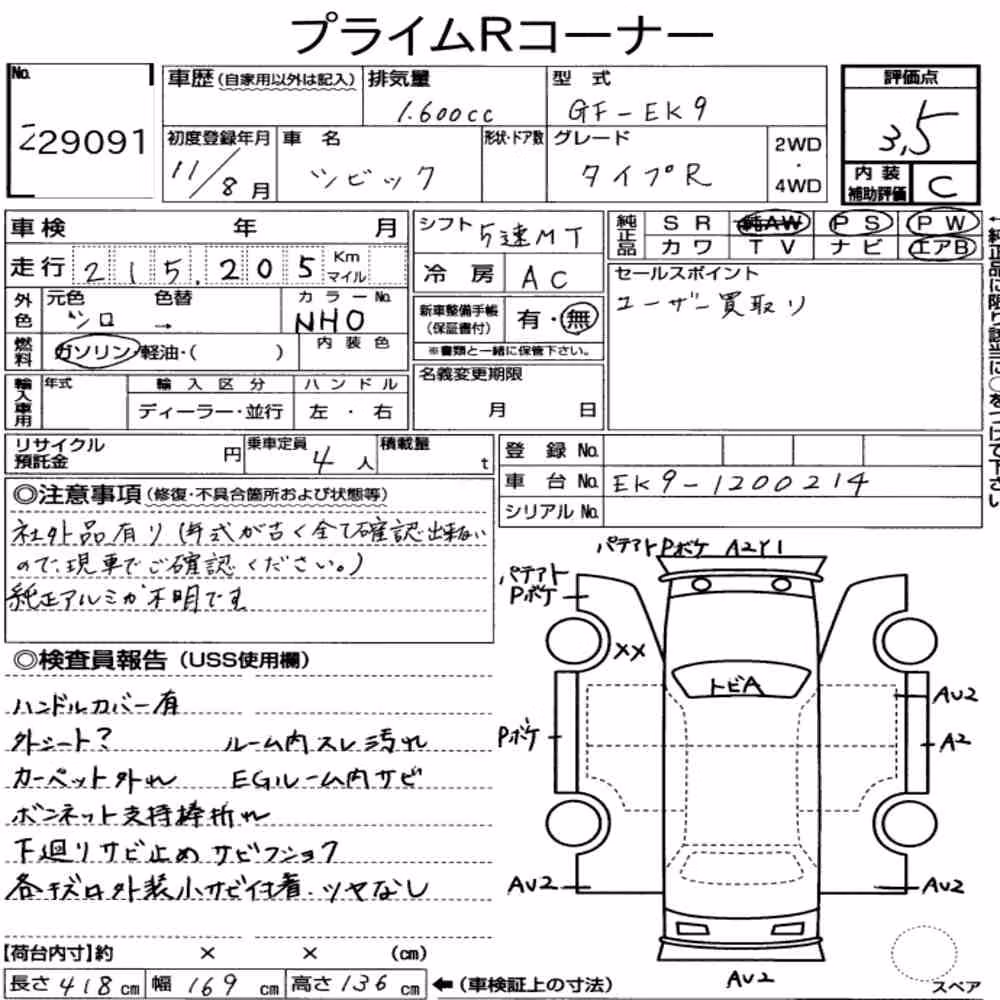 プライムRコーナー
No.
229091
車歴(自家用以外は記入)
排気量
1.600cc
型式
GF-EK9
評価点
3,5
初度登録年月
11/8月
車名
シビック
形状・ドア数
グレード
タイプR
2WD
・
4WD
内装
補助評価
C
車検 年 月
シフト
5速MT
純正品
SR
純AW
PS
PW
カワ
TV
ナビ
エアB
走行
215,205
Km
マイル
冷房
AC
セールスポイント
ユーザー買取り
外色
元色
色替
シロ →
カラーNo.
NHO
新車整備手帳
(保証書付)
有・無
※書類と一緒に保管下さい。
燃料
ガソリン・軽油・( )
内装色
輸入車用
年式
輸入区分
ハンドル
ディーラー・並行
左・右
名義変更期限
月 日
←純正品に限り該当に○をつけて下さい
リサイクル
預託金
円
乗車定員
4人
積載量
t
登録No.
車台No.
EK9-1200214
シリアルNo.
◎注意事項(修復・不具合箇所および状態等)
社外品有り(年式が古く全て確認出来ない
ので、現車でご確認ください。)
純正アルミか不明です
◎検査員報告(USS使用欄)
ハンドルカバー有
外シート? ルーム内スレ汚れ
カーペット外れ EGルーム内サビ
ボンネット支持棒折れ
下廻りサビ止め サビフショク
各キズロ外装小サビ付着.ツヤなし
パテアトPボケ A2Y1
パテアト
Pボケ
XX
トビA
AU2
Pボケ
A2
AU2
AU2
AU2
【荷台内寸】約 × × (cm)
長さ418cm
幅169cm
高さ136cm
←(車検証上の寸法)
スペア